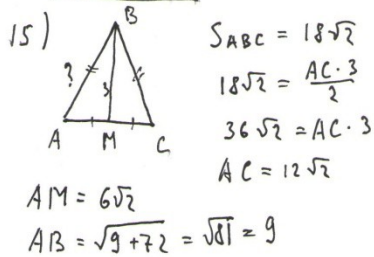 15)
B
?
3
A M C
S_ABC = 18√2
18√2 = AC · 3 / 2
36√2 = AC · 3
AC = 12√2
AM = 6√2
AB = √(9+72) = √81 = 9